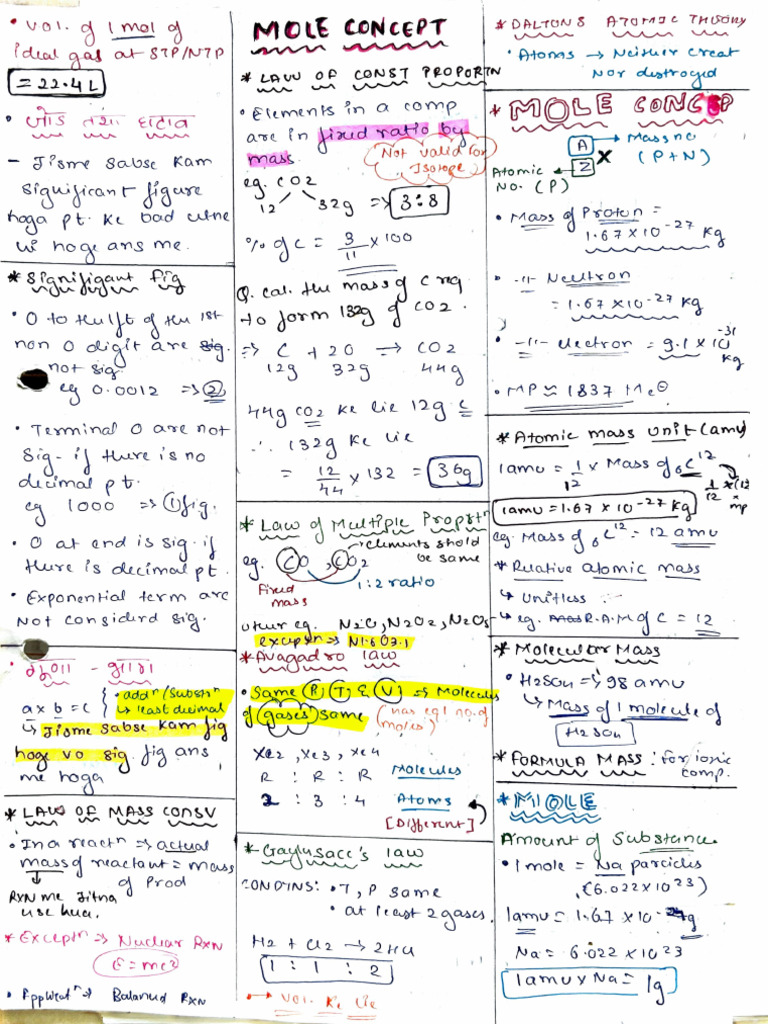 • Vol. of 1 mol of
ideal gas at STP/NTP
= 22.4 L
• जोड़ तथा घटाव
- Jisme sabse kam
significant figure
hoga pt. ke bad utne
hi hoge ans me.
* Signifigant fig
• 0 to the lft of the 1st
non 0 digit are sig.
not sig
eg 0.0012 => 2
• Terminal 0 are not
sig- if there is no
decimal pt.
eg 1000 => 1 fig.
• 0 at end is sig. if
there is decimal pt.
• Exponential term are
not considerd sig.
• गुणा - भाग
a x b = c { • addn/Substn
↳ least decimal
↳ Jisme sabse kam fig
hoge vo sig. fig ans
me hoga
* LAW OF MASS CONSV
• In a reactn => actual
mass of reactant = mass
of Prod
RXN me jitna
use hua.
* Exceptn => Nuclear RXN
E=mc2
• Balanced RXN
MOLE CONCEPT
* LAW OF CONST PROPORTN
• Elements in a comp
are in fixed ratio by
mass
(Not valid for
Isotope)
eg. CO2
12 32g => 3:8
% of C = 3/11 x 100
Q. cal. the mass of C req
to form 132g of CO2.
=> C + 2O => CO2
12g 32g 44g
44g CO2 ke lie 12g C
∴ 132g ke lie
= 12/44 x 132 = 36g
* Law of Multiple Proprtn
eg. CO , CO2
elements should
be same
1:2 ratio
Fixed
mass
other eg. N2O, N2O2, N2O5
exceptn => N1.6O3.1
* Avagadro law
• Same P, T, & V => Molecules
of gases same (has eql no. of
moles)
Xe2 , Xe3 , Xe4
R : R : R Molecules
2 : 3 : 4 Atoms
[Different]
* Gaylusacc's law
CONDTNS: • T, P same
• at least 2 gases.
H2 + Cl2 → 2HCl
1 : 1 : 2
→ Vol. ke lie
* DALTONS ATOMIC THEORY
• Atoms → Neither creat
Nor destroyed
* MOLE CONCEP
A → Mass no
X (P+N)
Z
Atomic
No. (P)
• Mass of Proton =
1.67 x 10-27 kg
• -11- Neutron
= 1.67 x 10-27 kg
• -11- electron = 9.1 x 10-31
kg
• MP ≈ 1837 Me⊖
* Atomic mass unit (amu)
1amu = 1/12 x Mass of 6C12
1/12 x (12 x mp
1amu = 1.67 x 10-27 kg
eg. Mass of 6C12 = 12 amu
* Relative atomic mass
↳ Unitless
↳ eg. R.A.M of C = 12
* Molecular Mass
• H2SO4 => 98 amu
↳ Mass of 1 molecule of
H2SO4
* FORMULA MASS: for ionic
comp.
* MOLE
Amount of Substance
• 1 mole = Na parcicles
(6.022 x 10 23)
1amu = 1.67 x 10-24g
Na = 6.022 x 10 23
1amu x Na = 1g